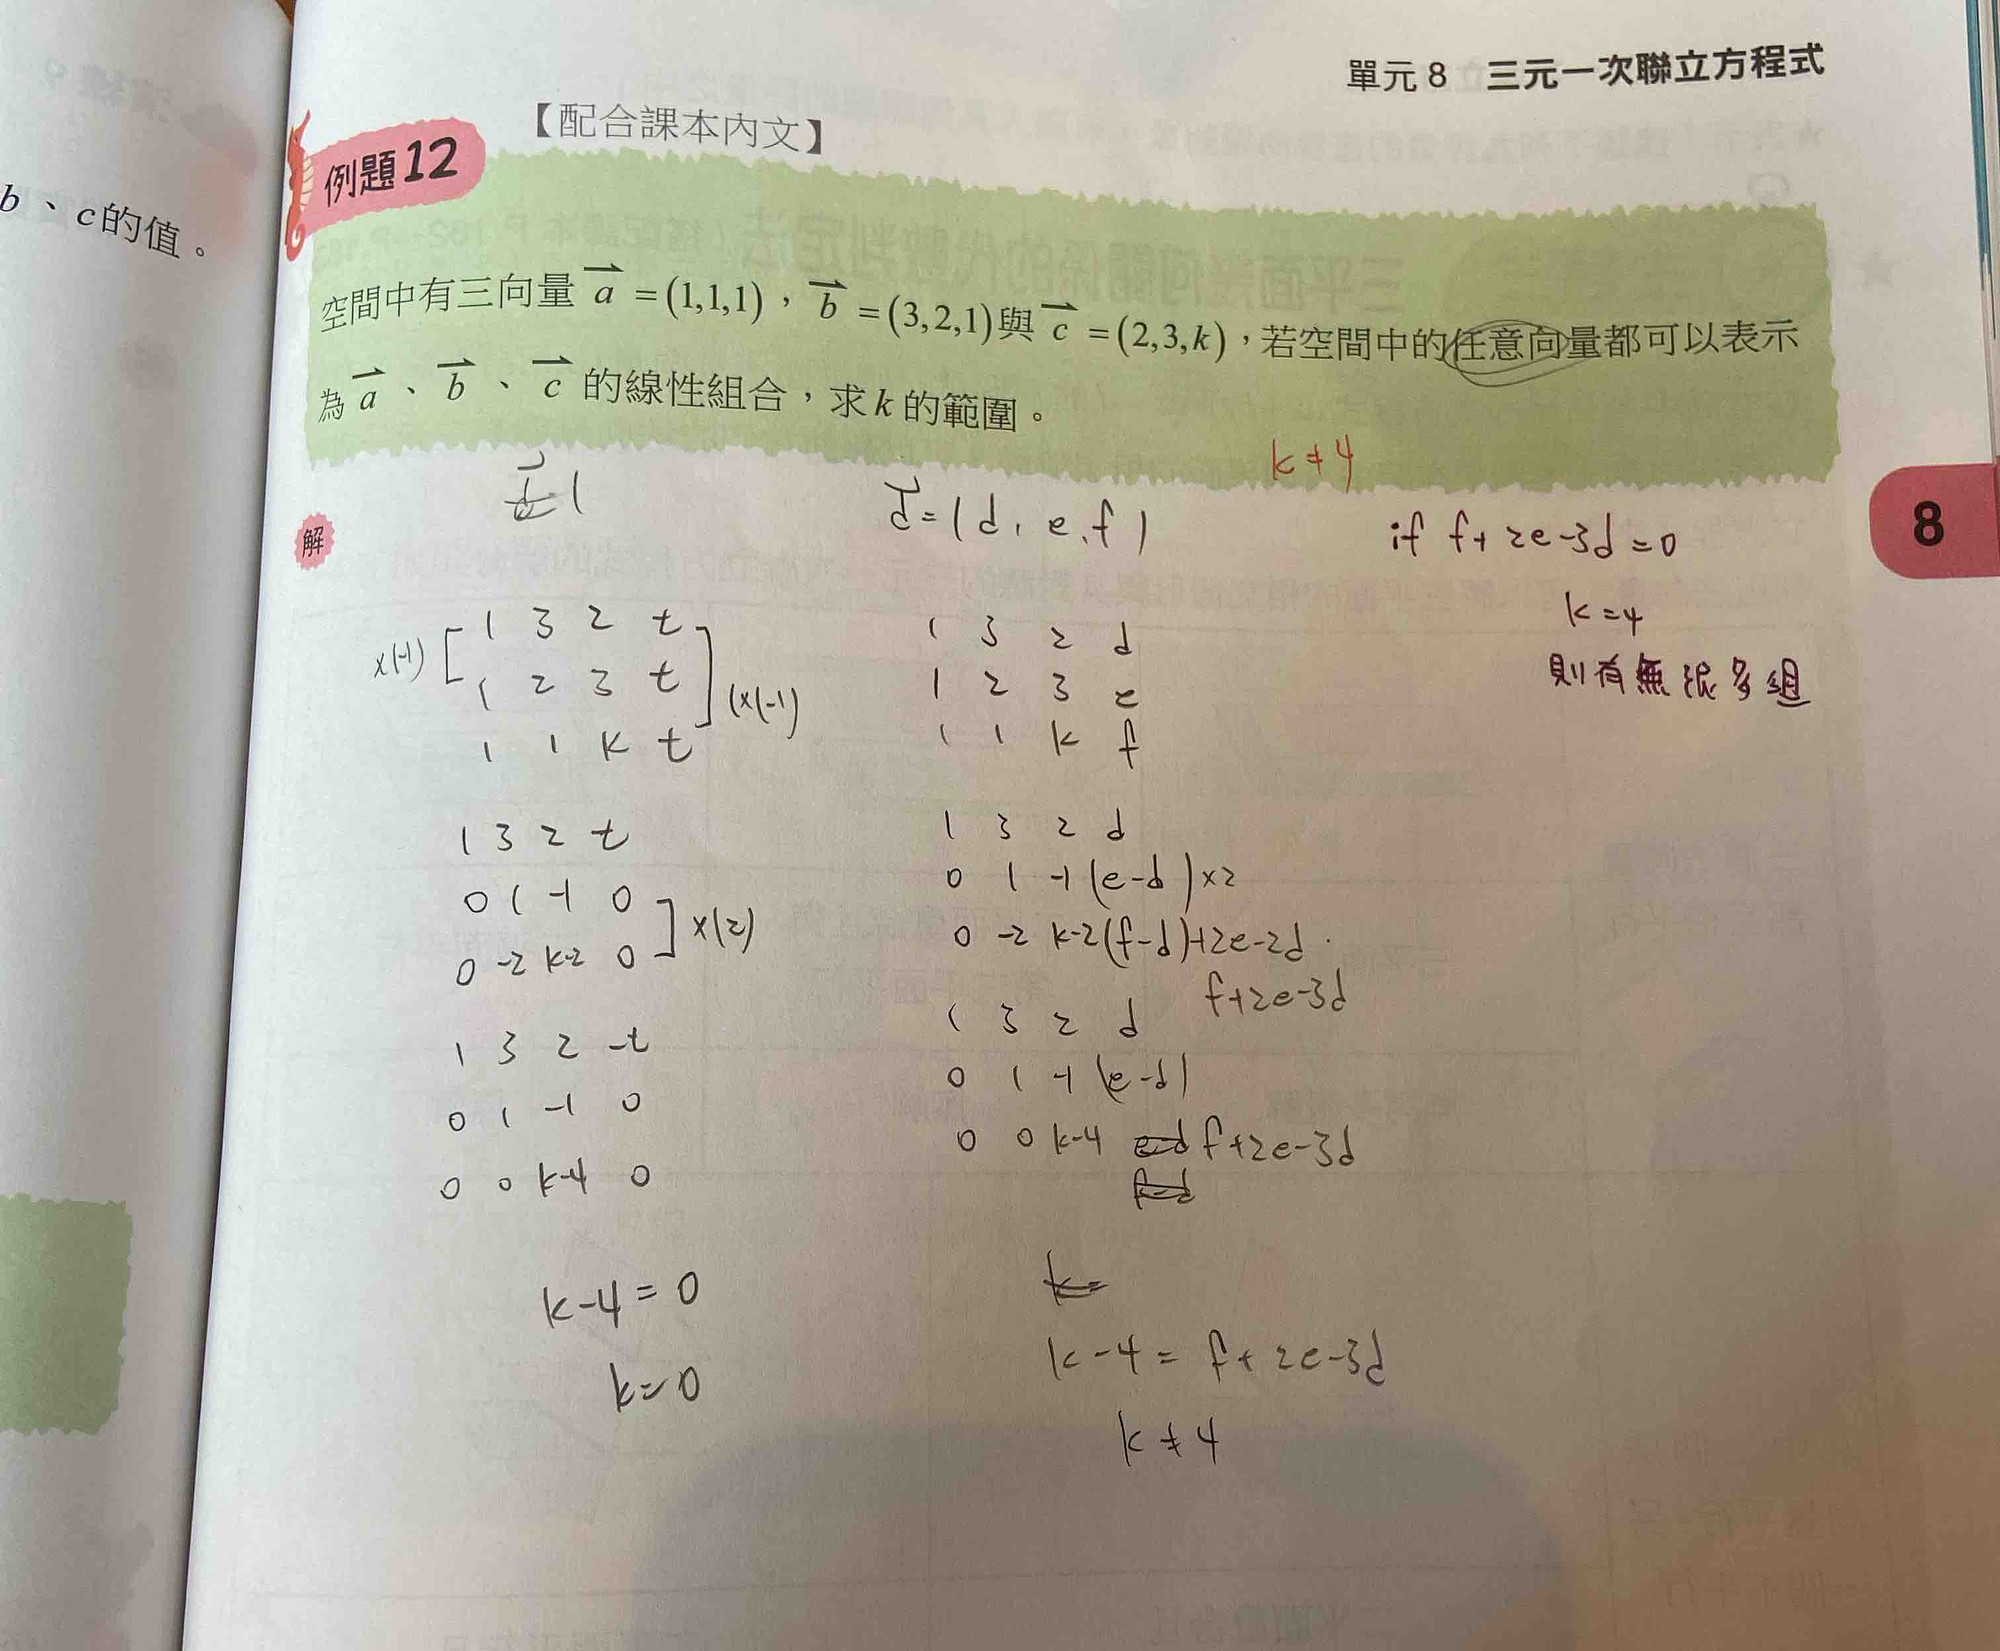 單元 8 三元一次聯立方程式
【配合課本內文】
例題12
b、c的值。
空間中有三向量 a = (1,1,1),b = (3,2,1)與 c = (2,3,k),若空間中的任意向量都可以表示
為 a、b、c 的線性組合,求 k 的範圍。
k≠4
8
解
d=(d, e, f)
if f+2e-3d=0
k=4
則有無限多組
x(-1) [ 1 3 2 t
1 2 3 t ] (x(-1)
1 1 k t
1 3 2 d
1 2 3 e
1 1 k f
1 3 2 t
0 1 -1 0
0 -2 k-2 0 ] x(2)
1 3 2 d
0 1 -1 (e-d) x2
0 -2 k-2 (f-d)+2e-2d
f+2e-3d
1 3 2 -t
0 1 -1 0
0 0 k-4 0
1 3 2 d
0 1 -1 (e-d)
0 0 k-4 e-d f+2e-3d
f-d
k-4=0
k=0
k=
k-4=f+2e-3d
k≠4